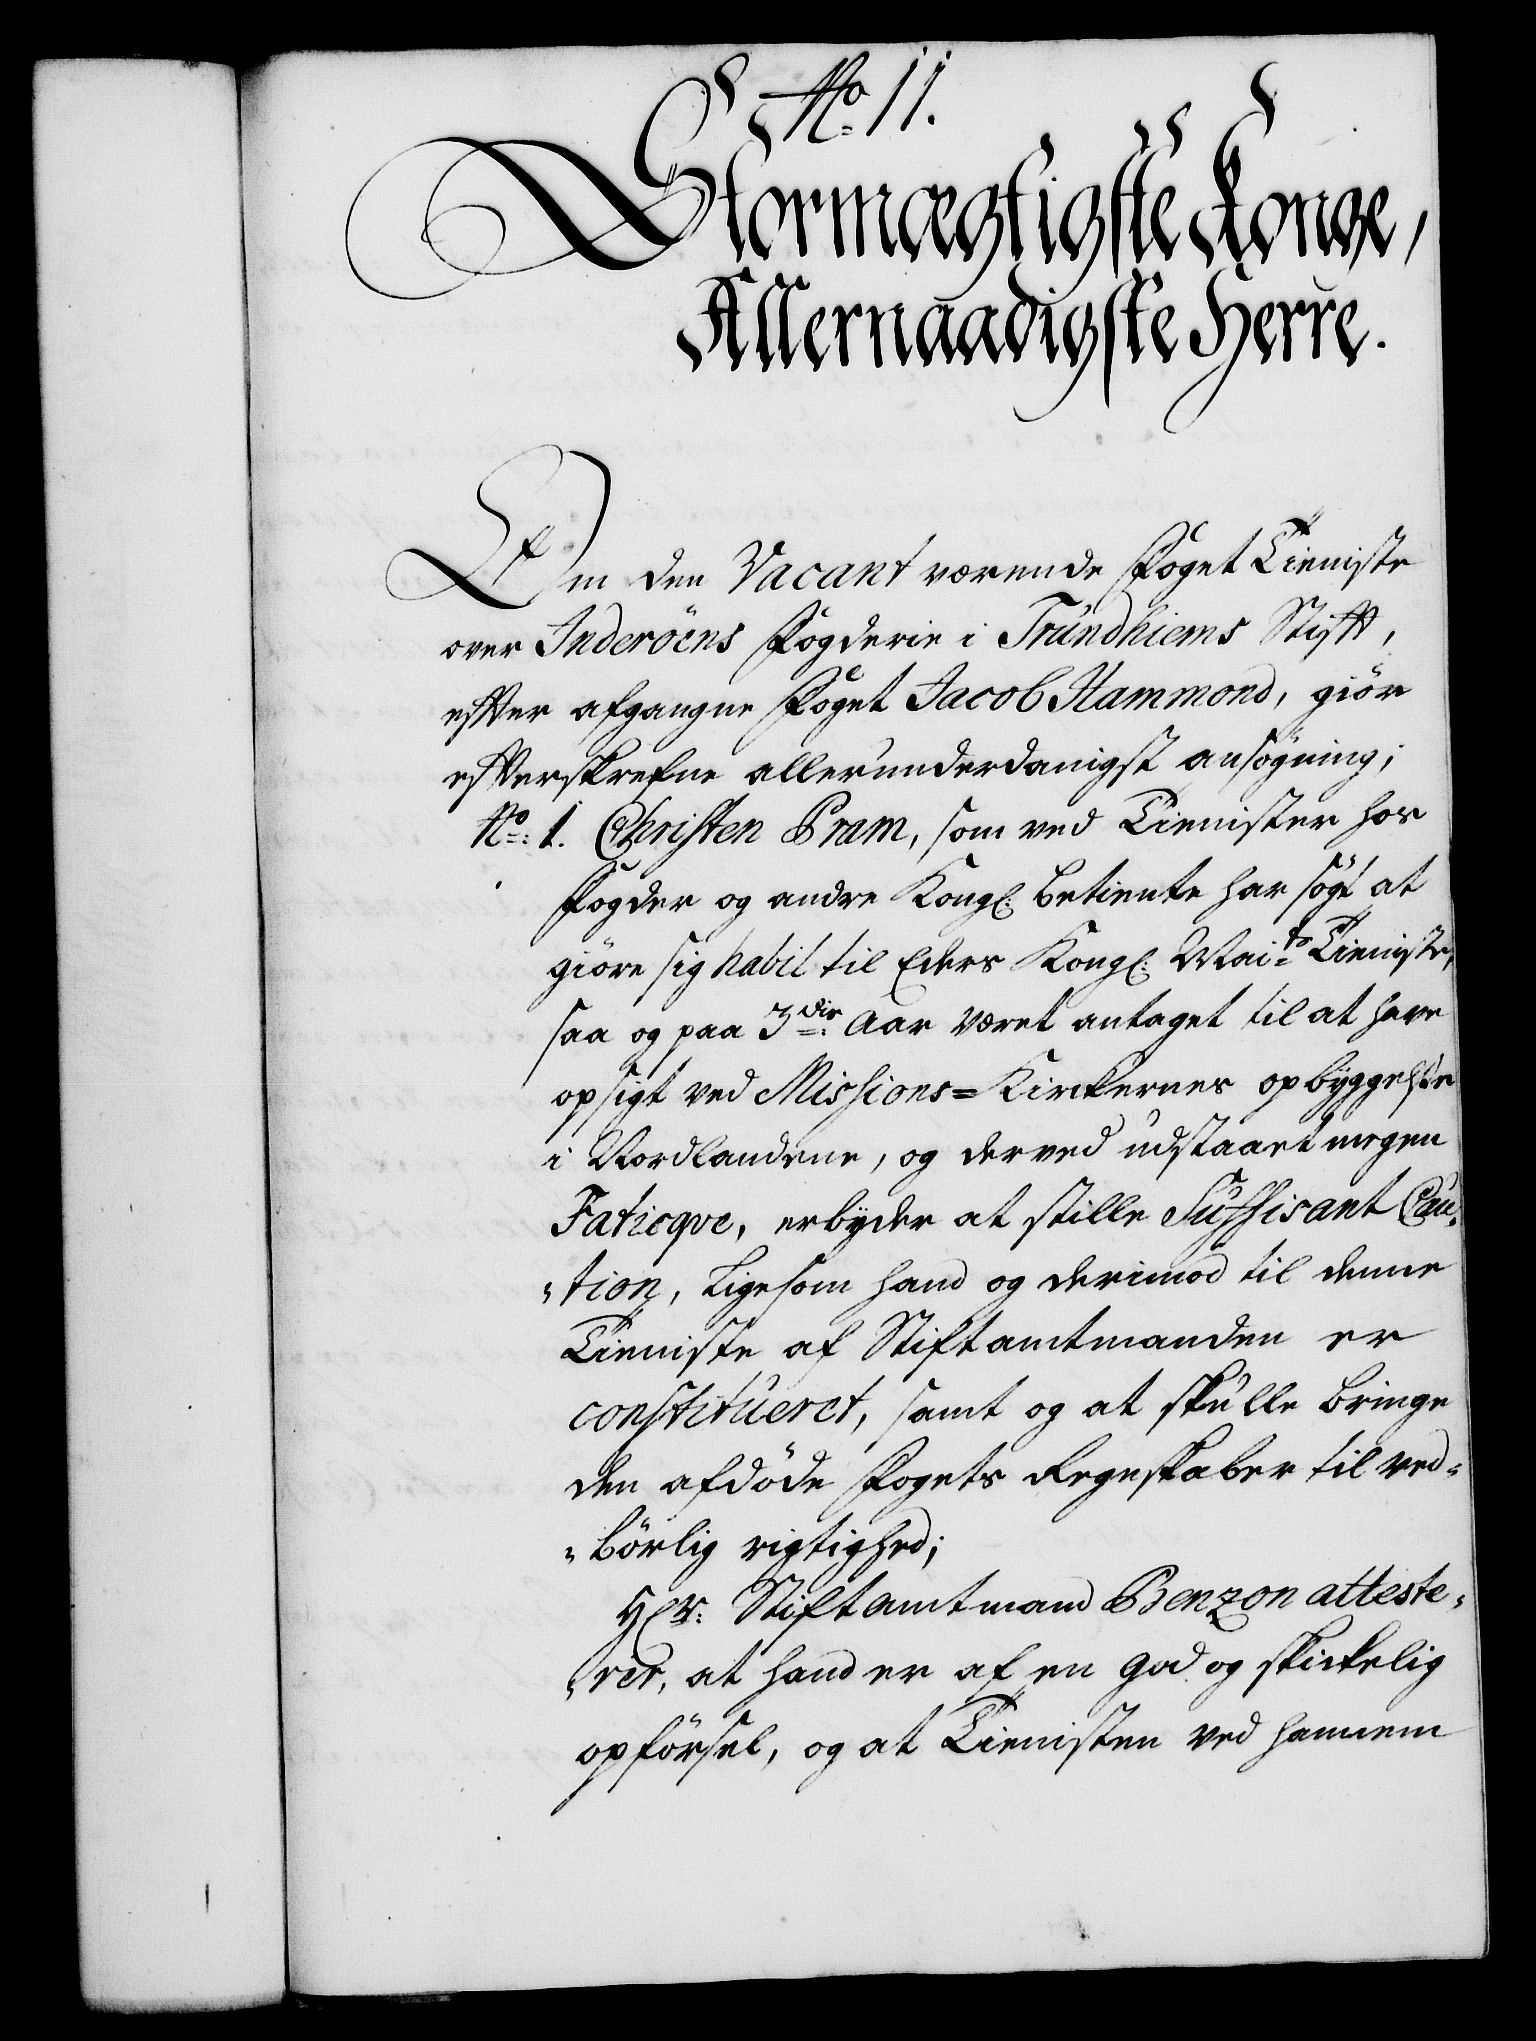 No. 11.
Stormægtigste Konge,
Allernaadigste Herre.
Om den Vacant værende Foget Tieniste
over Inderöens Fogderie i Trundhiems Stift,
effter afgangne Foget Jacob Hammond, giör
effterskrefne allerunderdanigst ansögning;
No: 1. Christen Pram, som ved Tienister hos
Fogder og andre Kongl: betiente har sögt at
giöre sig habil til Eders Kongl: Mai:ts Tieniste,
saa og paa 3die Aar været antaget til at have
opsigt ved Missions=Kirckernes opbyggelse
i Nordlandene, og derved udstaaet megen
Faticqve, erbyder at stille Suffisant Cau-
-tion, Ligesom hand og derimod til denne
Tieniste af Stiftamtmanden er
constitueret, samt og at skulle bringe
den afdöde Fogets Regnskaber til ved-
-börlig rigtighed;
Hr: Stiftamtmand Benzon atteste-
-rer, at hand er af en god og skickelig
opförsel, og at Tienisten ved hannem